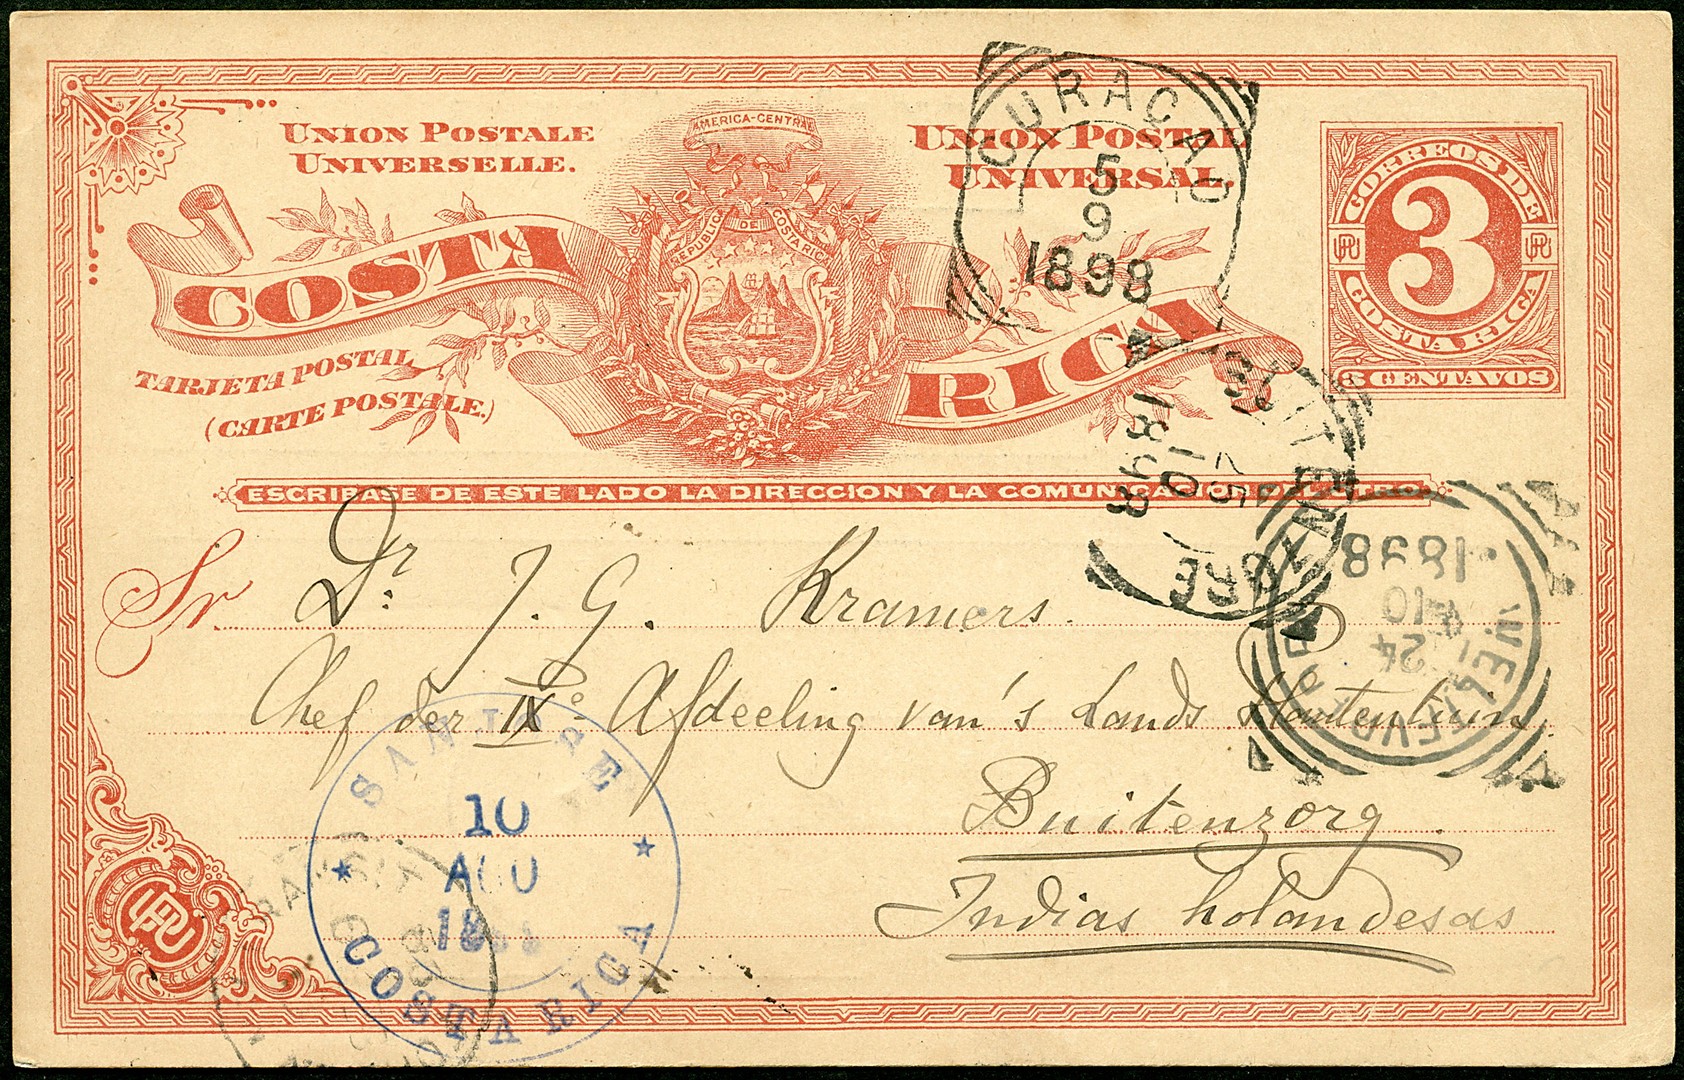 UNION POSTALE
UNIVERSELLE.
AMERICA-CENTRAL
REPUBLICA DE COSTA RICA
UNION POSTAL
UNIVERSAL
CORREOS DE
3
UPU UPU
COSTA RICA
3 CENTAVOS
COSTA RICA
TARJETA POSTAL
(CARTE POSTALE.)
CURACAO
5
9
1898
ESCRIBASE DE ESTE LADO LA DIRECCION Y LA COMUNICACION DEL OTRO
Sr Dr. J. G. Kramers.
Chef der IXe Afdeeling van's Lands Plantentuin
Buitenzorg.
Indias holandesas
BUITENZORG
25
10
1898
WELTEVREDEN
24
10
1898
SAN JOSE
10
AGO
COSTA RICA
UPU